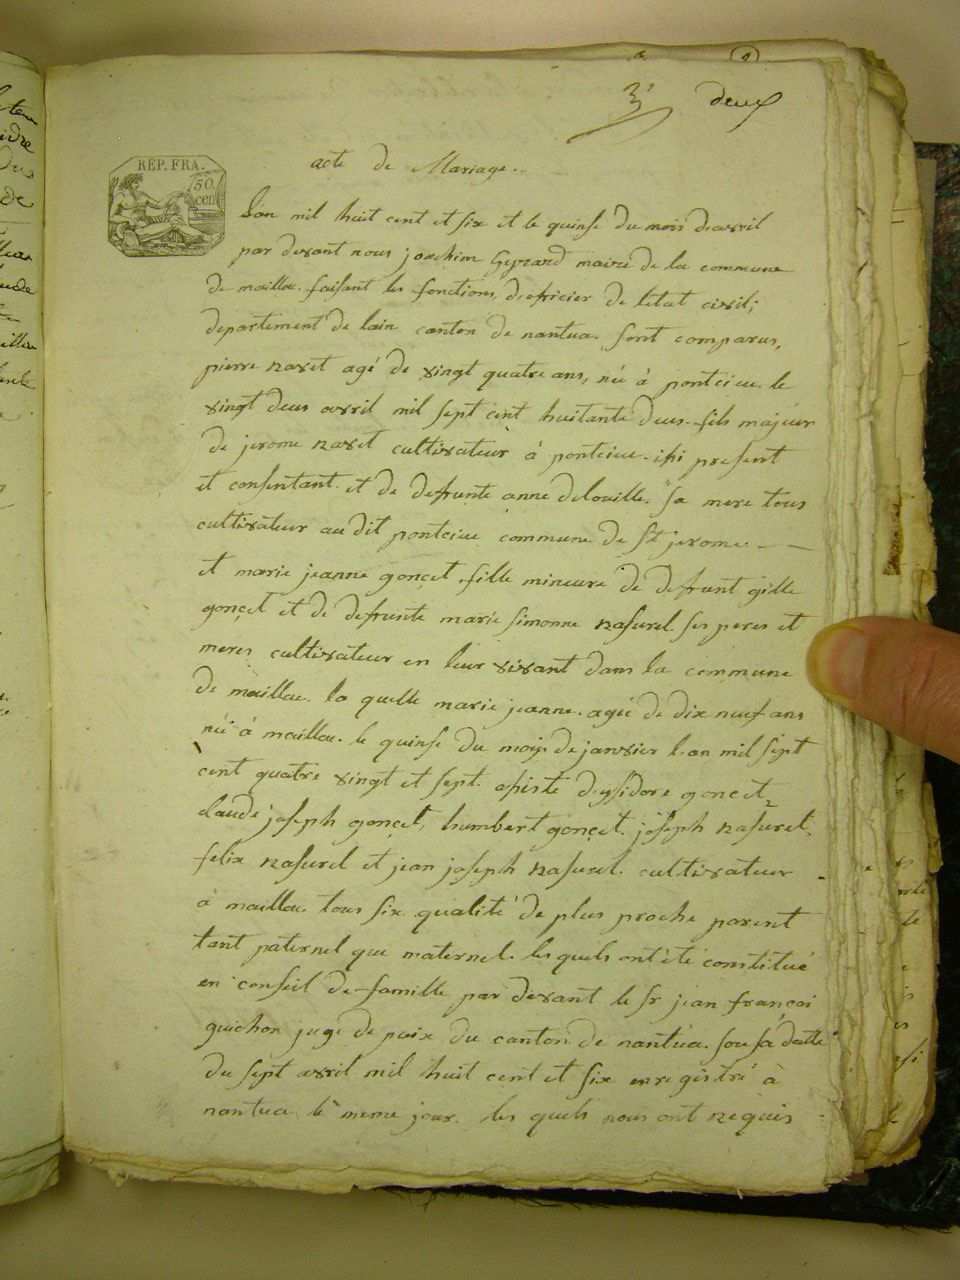 2
3e deux
acte de Mariage..
REP. FRA.
50
cen
L'an mil huit cent et six et le quinse du mois d'avril
par devant nous joachim Geyrard maire de la commune
de maillac. faisant les fonctions d'officier de l'etat civil;
departement de lain canton de nantua. sont comparus,
pierre ravet agé de vingt quatre ans, né à ponteiue. le
vingt deus avril mil sept cent huitante deus. fils majeur
de jerome ravet cultivateur à ponteiue. isi present
et consentant. et de defrunte anne delouille. sa mere tous
cultivateur au dit ponteiue commune de St jerome. —
et marie jeanne gonçet fille mineure de defrunt gille
gonçet et de defrunte marie simonne nasurel. ses peres et
meres cultivateur en leur vivant dans la commune
de maillac. la quelle marie jeanne. agée de dix neuf ans
née à maillac. le quinse du mois de janvier l'an mil sept
cent quatre vingt et sept. asisté d'ysidore gonçet
claude joseph gonçet, humbert gonçet. joseph nasurel.
felix nasurel et jean joseph nasurel. cultivateur
à maillac. tous six qualité de plus proche parent
tant paternel que maternel. les quels ont été constitué
en conseil de famille par devant le sr jean françoi
guichon juge de paix du canton de nantua. sou sa datte
du sept avril mil huit cent et six enregistré à
nantua le meme jour. les quels nous ont requis